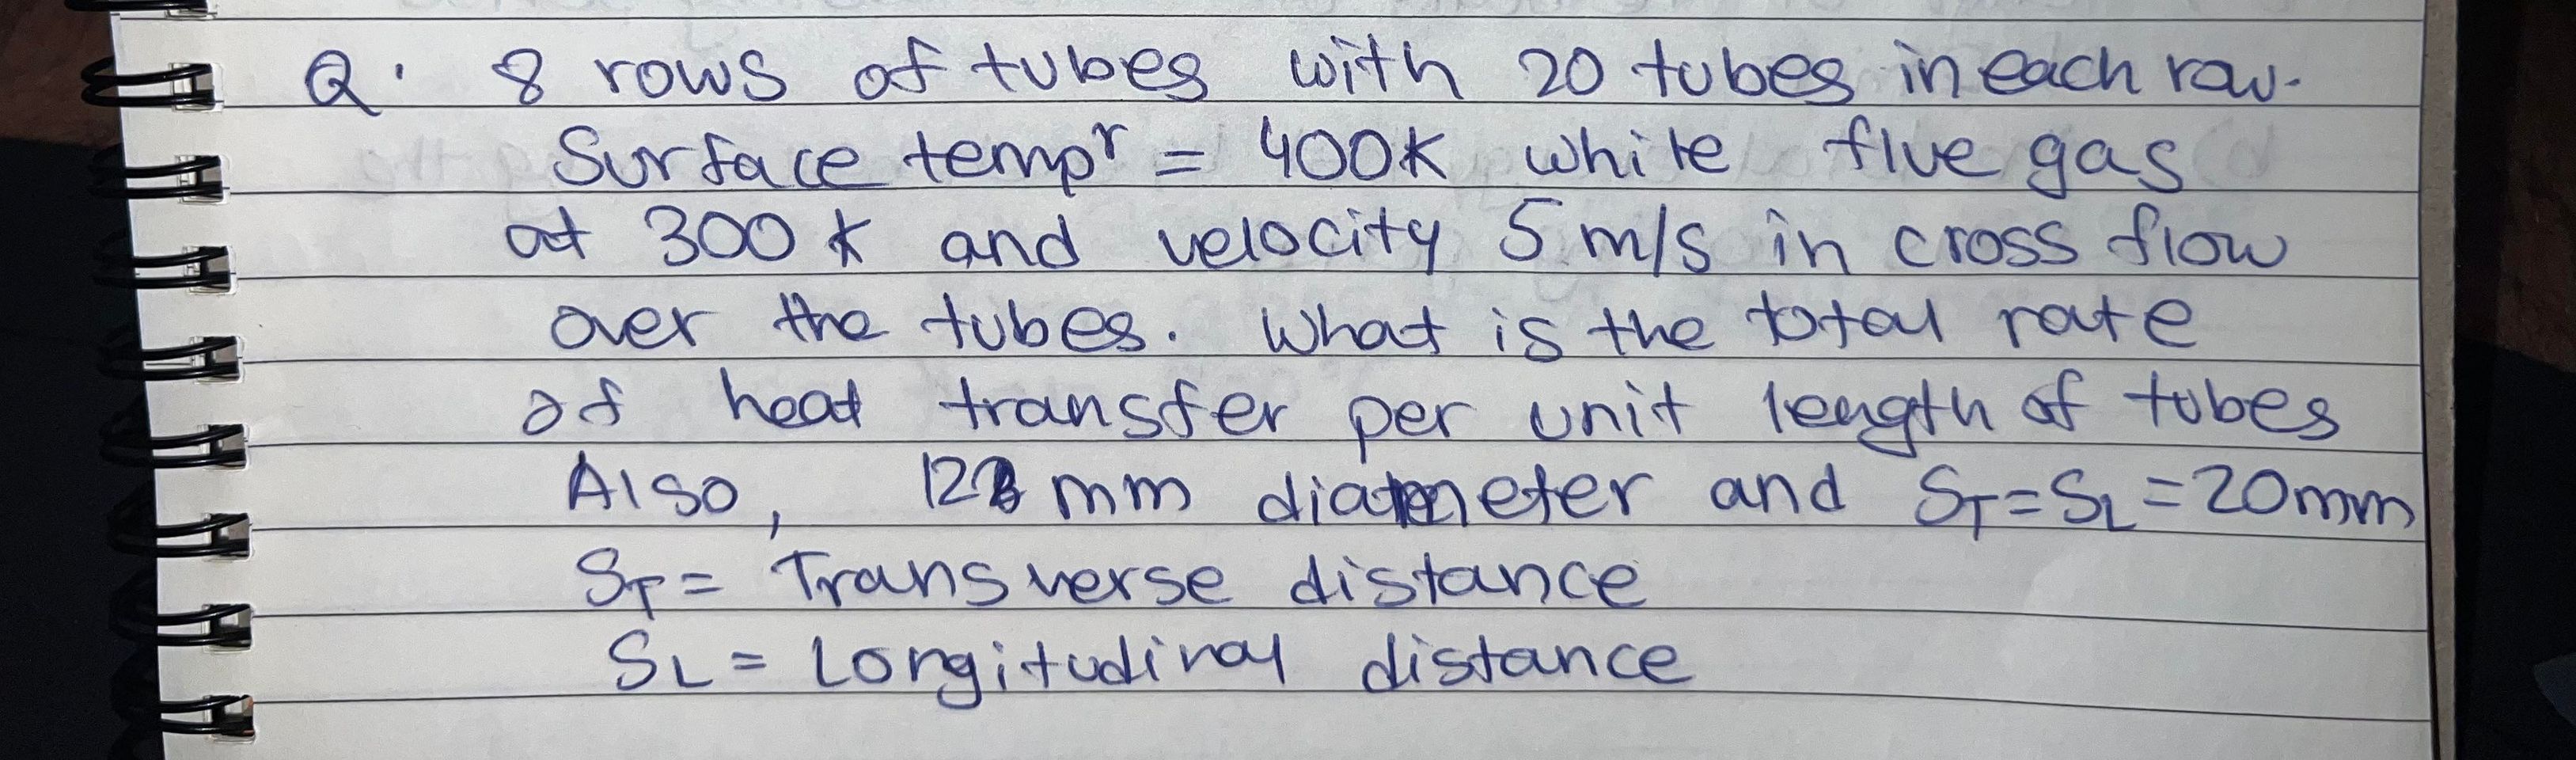 Q. 8 rows of tubes with 20 tubes in each row.
Surface tempʳ = 400K while flue gas
at 300 K and velocity 5 m/s in cross flow
over the tubes. What is the total rate
of heat transfer per unit length of tubes
Also, mm diameter and S_T = S_L = 20mm
S_T = Transverse distance
S_L = Longitudinal distance